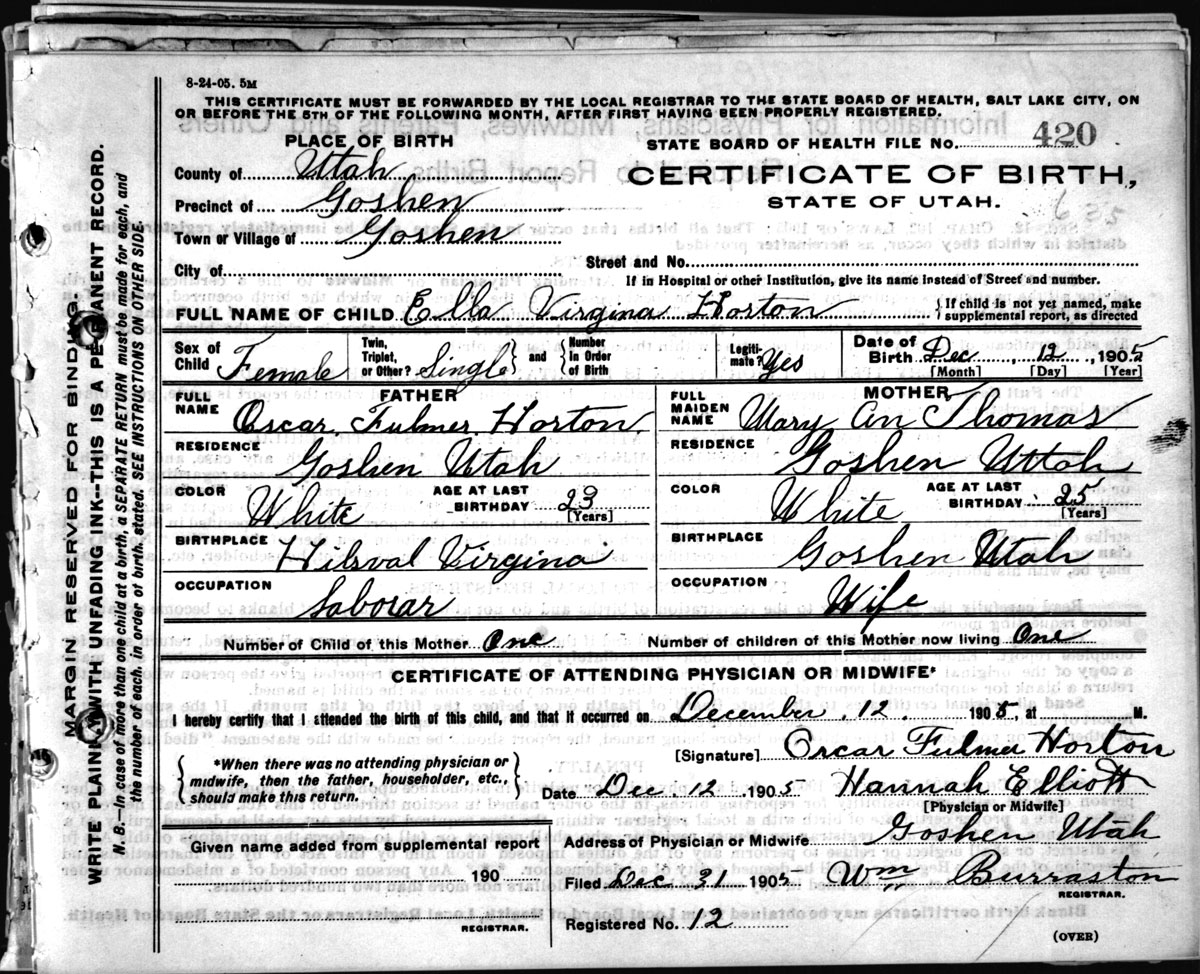 8-24-05. 5M
THIS CERTIFICATE MUST BE FORWARDED BY THE LOCAL REGISTRAR TO THE STATE BOARD OF HEALTH, SALT LAKE CITY, ON
OR BEFORE THE 5TH OF THE FOLLOWING MONTH, AFTER FIRST HAVING BEEN PROPERLY REGISTERED.
PLACE OF BIRTH
STATE BOARD OF HEALTH FILE No. 420
County of Utah
CERTIFICATE OF BIRTH,
Precinct of Goshen
STATE OF UTAH.
Town or Village of Goshen
City of
Street and No.
If in Hospital or other Institution, give its name instead of Street and number.
FULL NAME OF CHILD Ella Virginia Horton
{If child is not yet named, make
supplemental report, as directed
Sex of Child Female
Twin, Triplet, or Other? Single } and { Number In Order of Birth
Legiti-mate? Yes
Date of Birth Dec, 12, 1905
[Month] [Day] [Year]
FATHER
FULL NAME Oscar Fulmer Horton
RESIDENCE Goshen Utah
COLOR White
AGE AT LAST BIRTHDAY 23
[Years]
BIRTHPLACE Hilsval Virgina
OCCUPATION Laborar
MOTHER
FULL MAIDEN NAME Mary An Thomas
RESIDENCE Goshen Uttah
COLOR White
AGE AT LAST BIRTHDAY 25
[Years]
BIRTHPLACE Goshen Utah
OCCUPATION Wife
Number of Child of this Mother One
Number of children of this Mother now living One
CERTIFICATE OF ATTENDING PHYSICIAN OR MIDWIFE*
I hereby certify that I attended the birth of this child, and that it occurred on December, 12, 1905, at M.
{ *When there was no attending physician or
midwife, then the father, householder, etc.,
should make this return. }
[Signature] Oscar Fulmer Horton
Date Dec 12 1905 Hannah Elliott
[Physician or Midwife]
Given name added from supplemental report
190
REGISTRAR.
Address of Physician or Midwife Goshen Utah
Filed Dec 31 1905 Wm Burraston
REGISTRAR.
Registered No. 12
(OVER)
MARGIN RESERVED FOR BINDING.
WRITE PLAINLY WITH UNFADING INK--THIS IS A PERMANENT RECORD.
N. B.—In case of more than one child at a birth, a SEPARATE RETURN must be made for each, and
the number of each, in order of birth, stated. SEE INSTRUCTIONS ON OTHER SIDE.